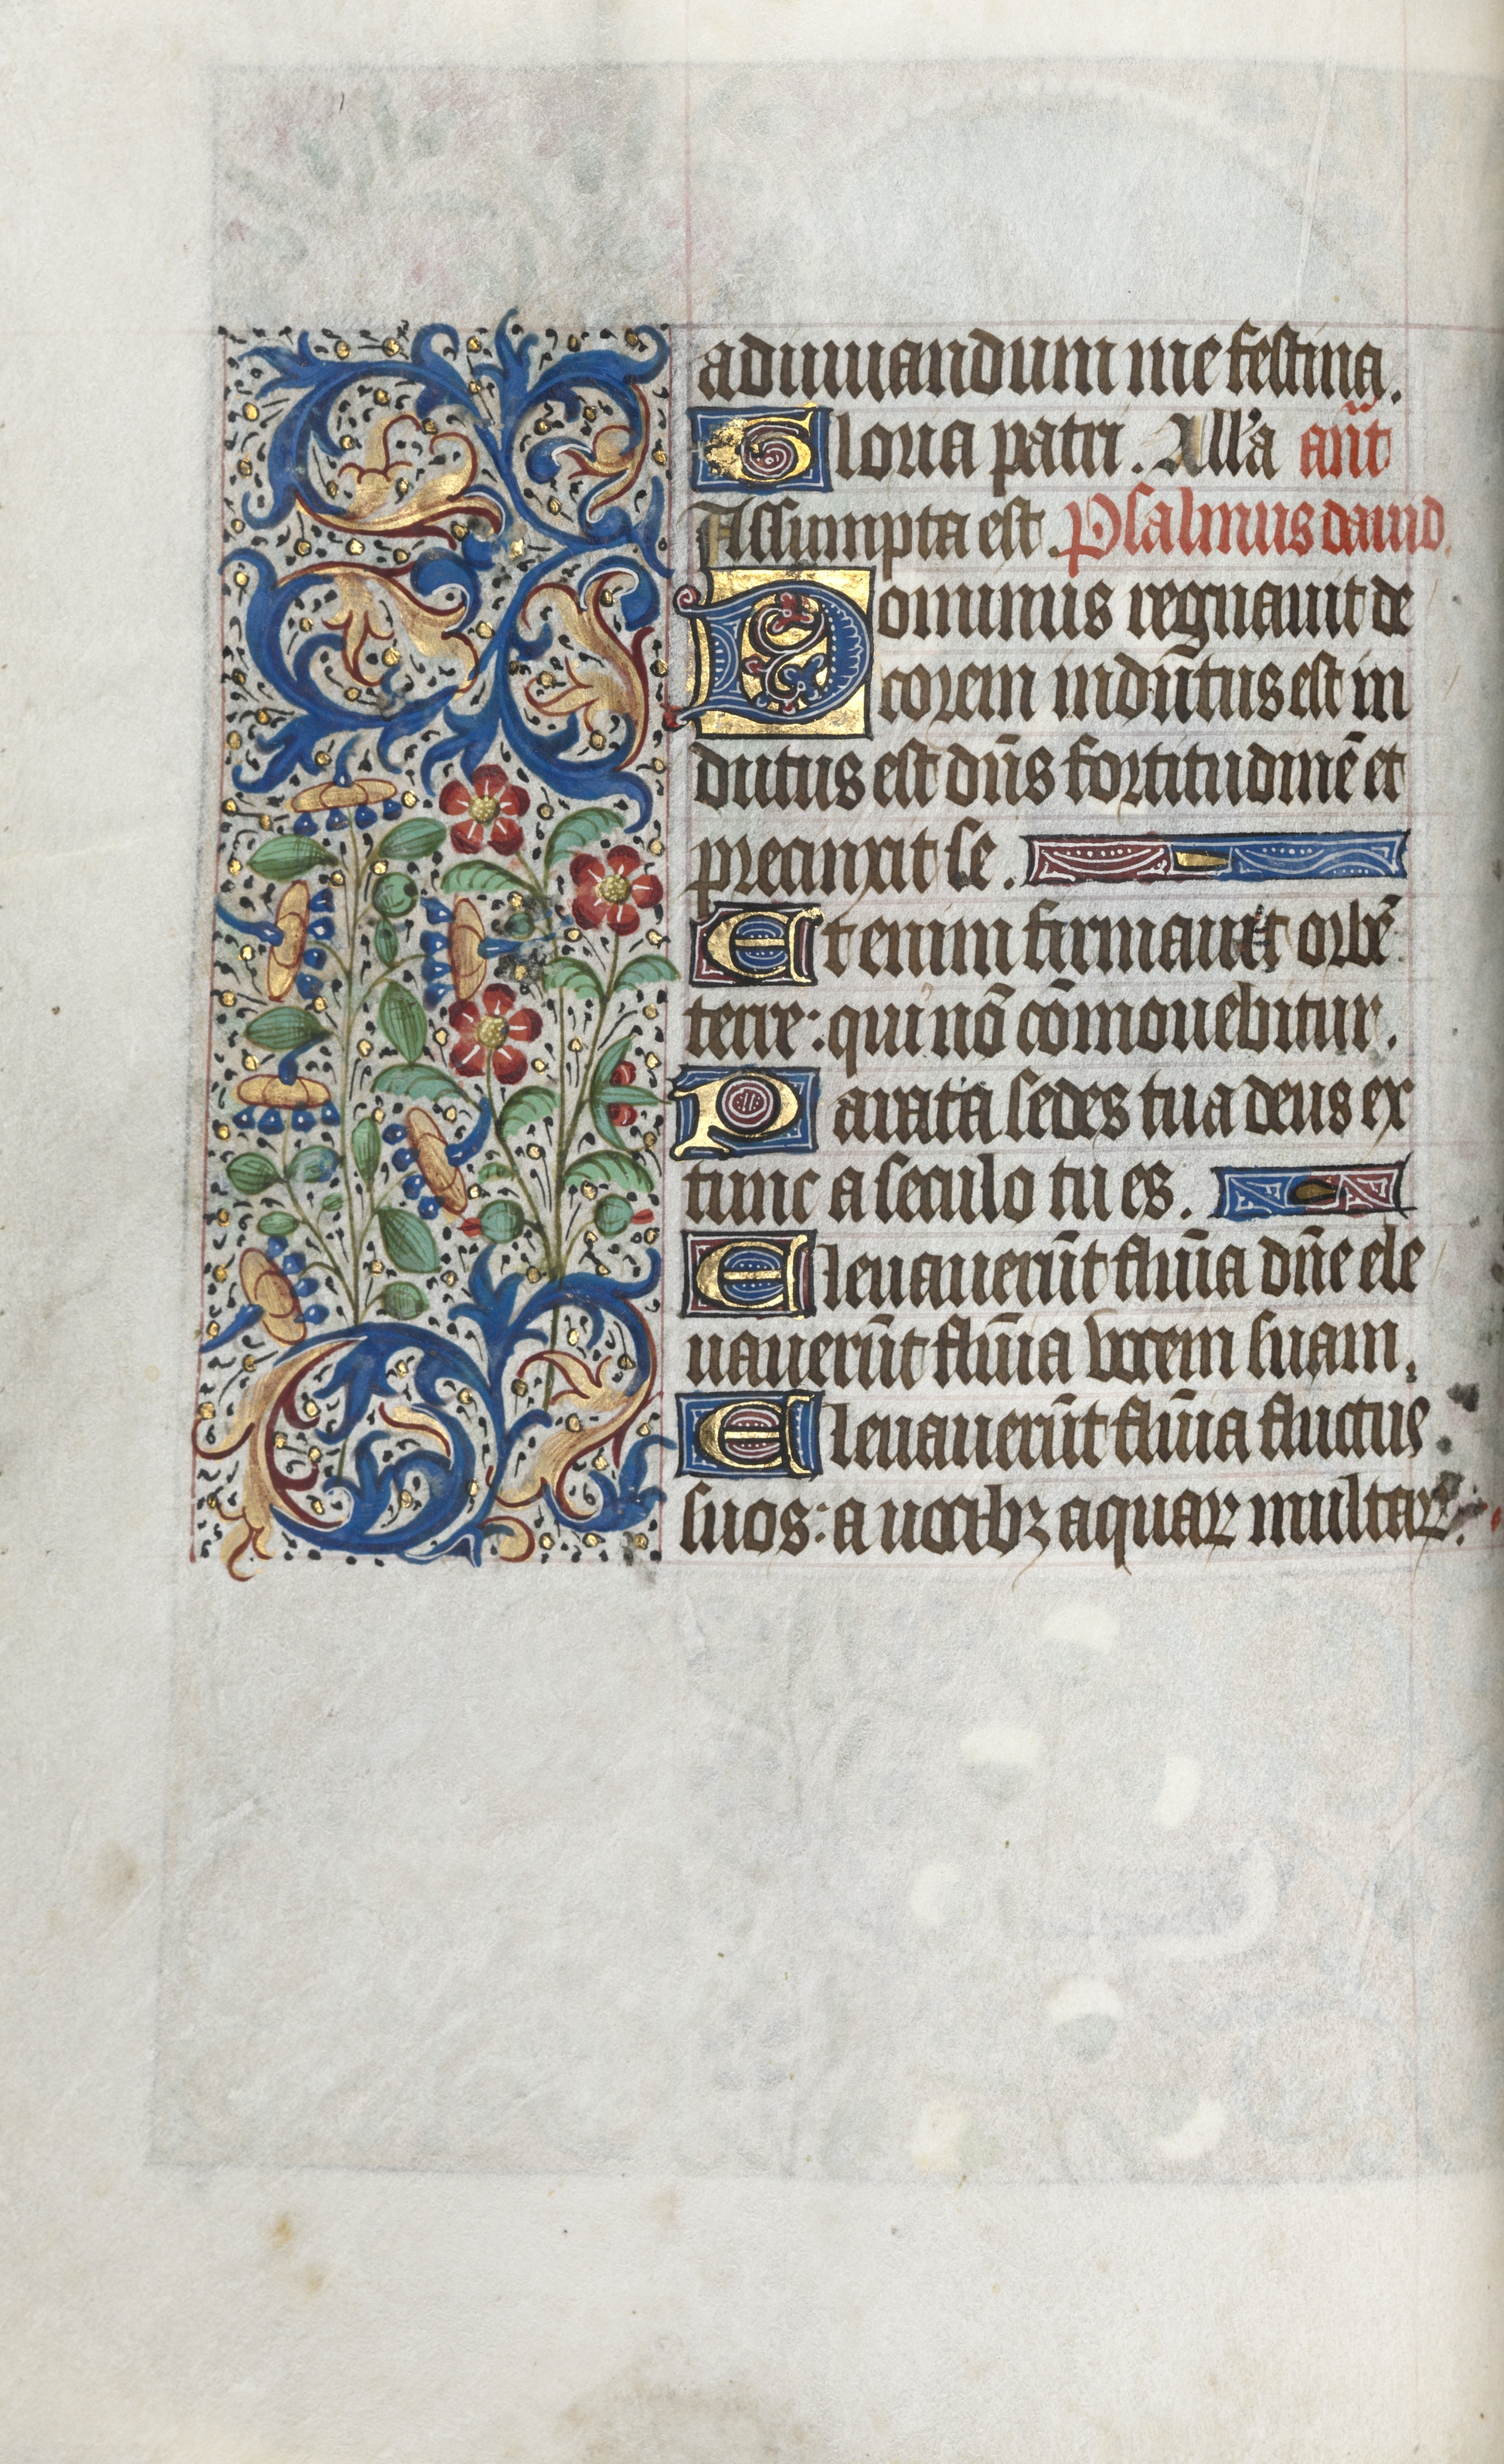 adiuuandum me festina.
Gloria patri. All'a añt
Assumpta est. Psalmus dauid.
Dominus regnauit de
corem indūtus est in
dutus est dñs fortitudinē et
precinxit se.
Et enim firmauit orbē
terre: qui nō cōmouebitur.
Parata sedes tua deus ex
tunc a seculo tu es.
Eleuauerūt flūīa dñe ele
uauerūt flūīa vocem suam.
Eleuauerūt flūīa fluctus
suos: a uocibꝫ aquaꝝ multaꝝ.